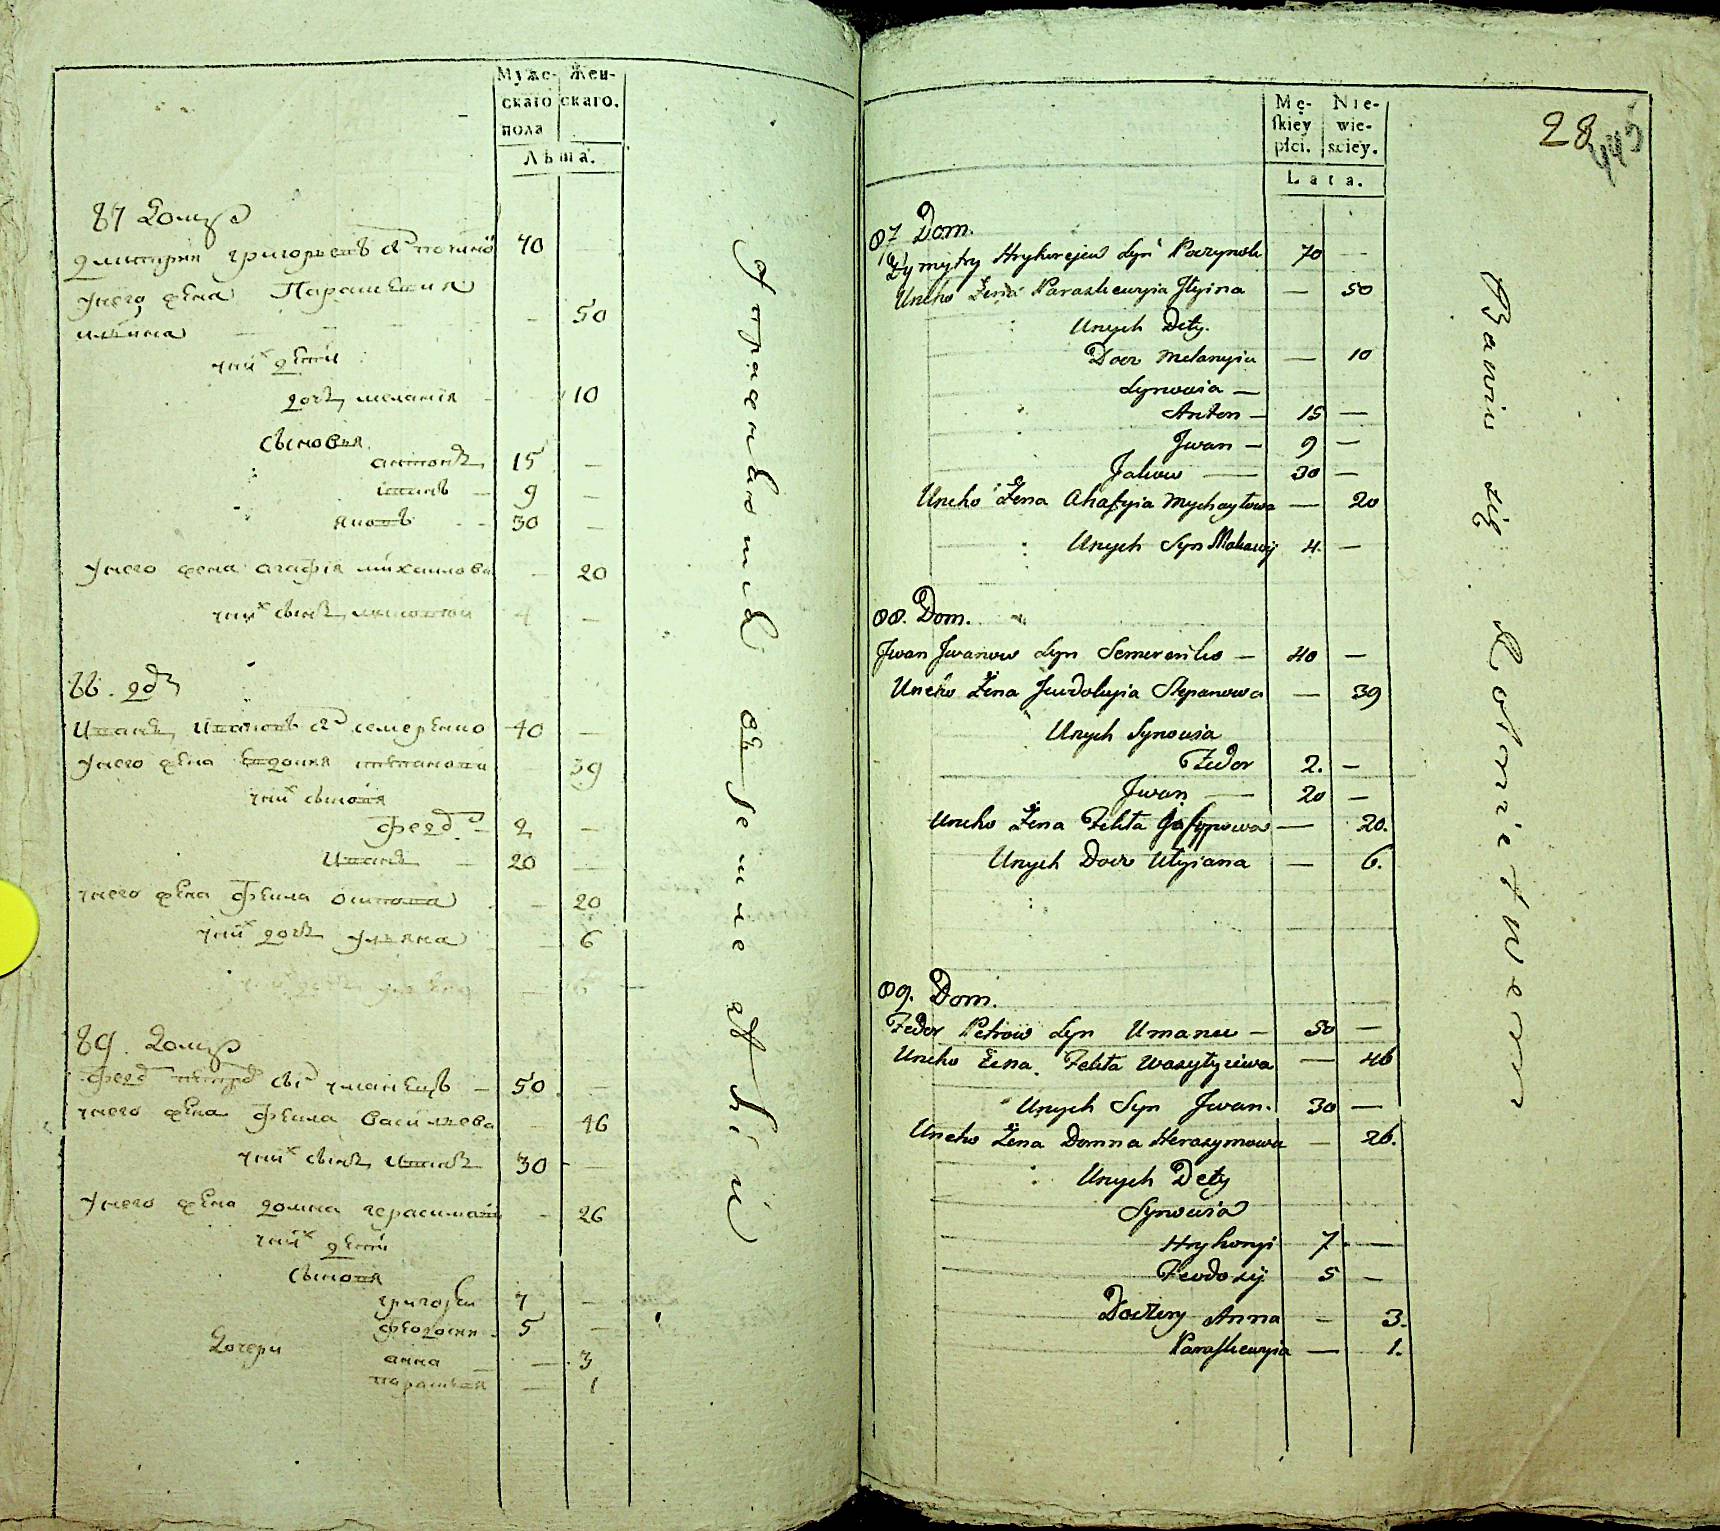 Муже-
скаго
пола
Жен-
скаго.
Лѣта.
87 Домъ
Дмитрий григорьевъ сн̃ 70 —
Унего жена Парасковия
илинa — 50
Унихъ дети
дочь мелания — 10
Сыновья
антонъ 15 —
иванъ 9 —
яковъ 30 —
Унего жена агафія михаилова — 20
Унихъ сынъ маковей 4 —
88. дом
Иванъ Ивановъ сн̃ семеренко 40 —
Унего жена Евдокия степанова 39
Унихъ сыновя
федор 2 —
Иванъ 20 —
Унего жена Фекла осипова — 20
Унихъ дочь уляна — 6
89. Домъ
федор петров сн̃ уманецъ — 50 —
Унего жена Фекла Василева 46
Унихъ сынъ Иванъ 30 —
Унего жена домна герасимова — 26
Унихъ дети
Сыновя
григорий 7 —
феодосий 5 —
Дочери анна — 3
парасковия — 1
Mę-
skiey
płci.
Nie-
wie-
sciey.
Lata.
28
87 Dom.
Dymytry Hryhorejew Syn 70 —
Uneho Żena Paraskewyia Jlyina — 50
Unych Dety.
Docz Melanyia — 10
Synowia —
Anton — 15 —
Jwan — 9 —
Jakow — 30 —
Uneho Żena Ahafyia Mychayłowa — 20
Unych Syn Makawij 4. —
88. Dom.
Jwan Jwanow Syn Semerenko — 40 —
Uneho Żena Jewdokyia Stepanowa — 39
Unych Synowia
Fedor 2. —
Jwan — 20 —
Uneho Żena Fekła — 20.
Unych Docz Ulyiana — 6.
89. Dom.
Fedor Petrow Syn Umanec — 50 —
Uneho Żena Fekła Wasyłyiewa — 46
Unych Syn Jwan. 30 —
Uneho Żena Domna Herasymowa — 26.
Unych Dety
Synowia
Hryhoryi 7. —
Feodosij 5 —
Doczery Anna — 3.
Paraskewyia — 1.